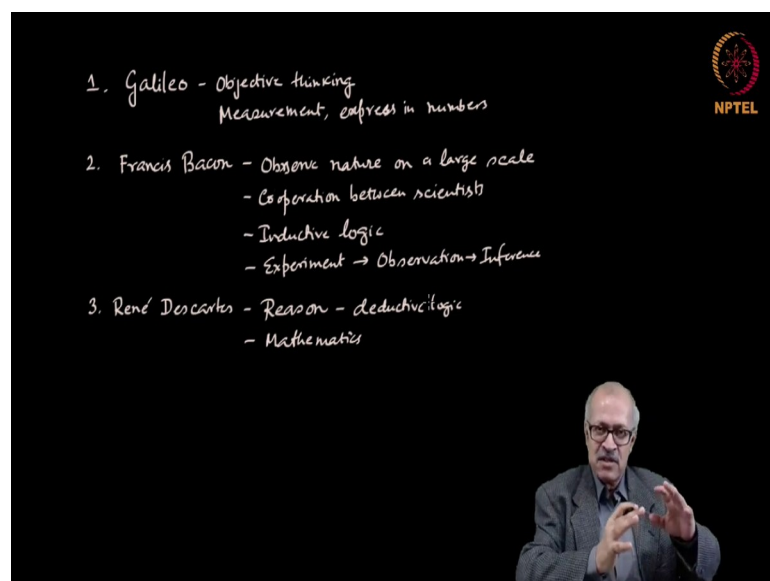 1. Galileo - Objective thinking
Measurement, express in numbers
NPTEL
2. Francis Bacon - Observe nature on a large scale
- Cooperation between scientists
- Inductive logic
- Experiment → Observation → Inference
3. René Descartes - Reason - deductive logic
- Mathematics